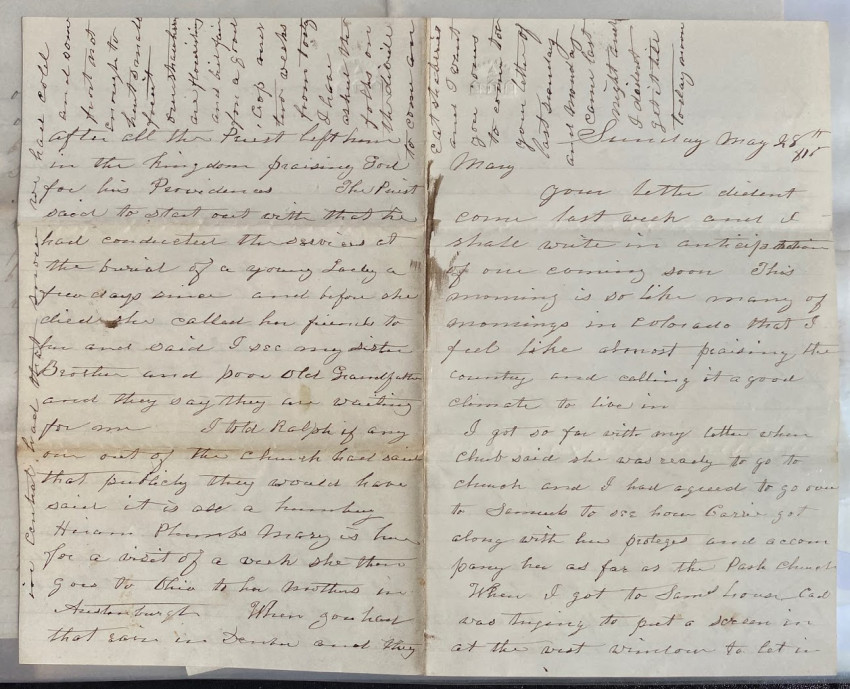 Sunday May 28th
Mary
your letter dident
come last week and I
shall write in anticipation
of one coming soon This
morning is so like many of
mornings in Colorado that I
feel like almost praising the
country and calling it a good
climate to live in
I got so far with my letter when
Chub said she was ready to go to
church and I had agreed to go over
to Samuels to see how Carrie got
along with her proteges and accom
pany her as far as the Park Church
When I got to Sams house Cad
was trying to put a screen in
at the west window to let in
after all the Priest left him
in the Kingdom praising God
for his Providences The Priest
said to start out with that he
had conducted the services at
the burial of a young Lady a
few days since and before she
died she called her friends to
her and said I see my sister
Brother and poor Old Grandfather
and they say they are waiting
for me I told Ralph if any
one out of the Church had said
that publicly they would have
said it is all a humbug
Hiram Plumbs Mary is here
for a visit of a week she then
goes to Ohio to her Mothers in
Austenburgh When you had
that rain in Denver and they
in Central had that snow we had cold
and some
frost not
enough to
hurt small
fruit
our strawberries
are flourishing
and bid fair
for a good
crop over
two weeks
from today
I have
asked the
folks on
the divide
to come an
eat strawberries
and I want
you
to come too
your letter of
last sunday
and monday
came last
night and
I dident
get it till
today noon